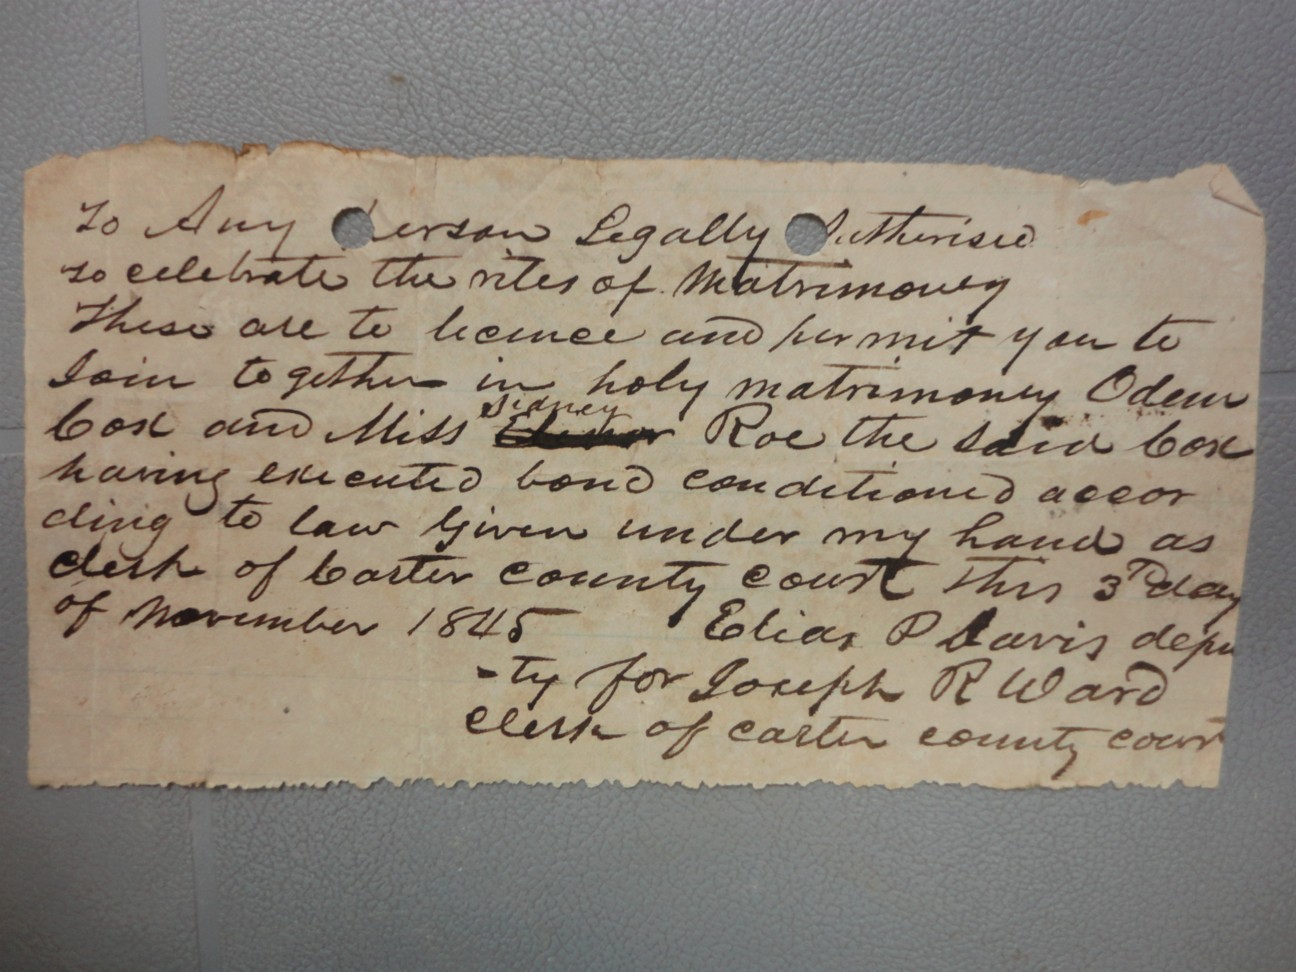 To Any Person Legally Autherised
to celebrate the rites of Matrimoney
These are to licence and permit you to
Join together in holy matrimoney Odem
Cox and Miss Sidney Roe the said Cox
having executed bond conditioned accor
ding to law Given under my hand as
clerk of Carter county court this 3rd day
of November 1845 Elias P Davis depu
-ty for Joseph R Ward
Clerk of carter county court